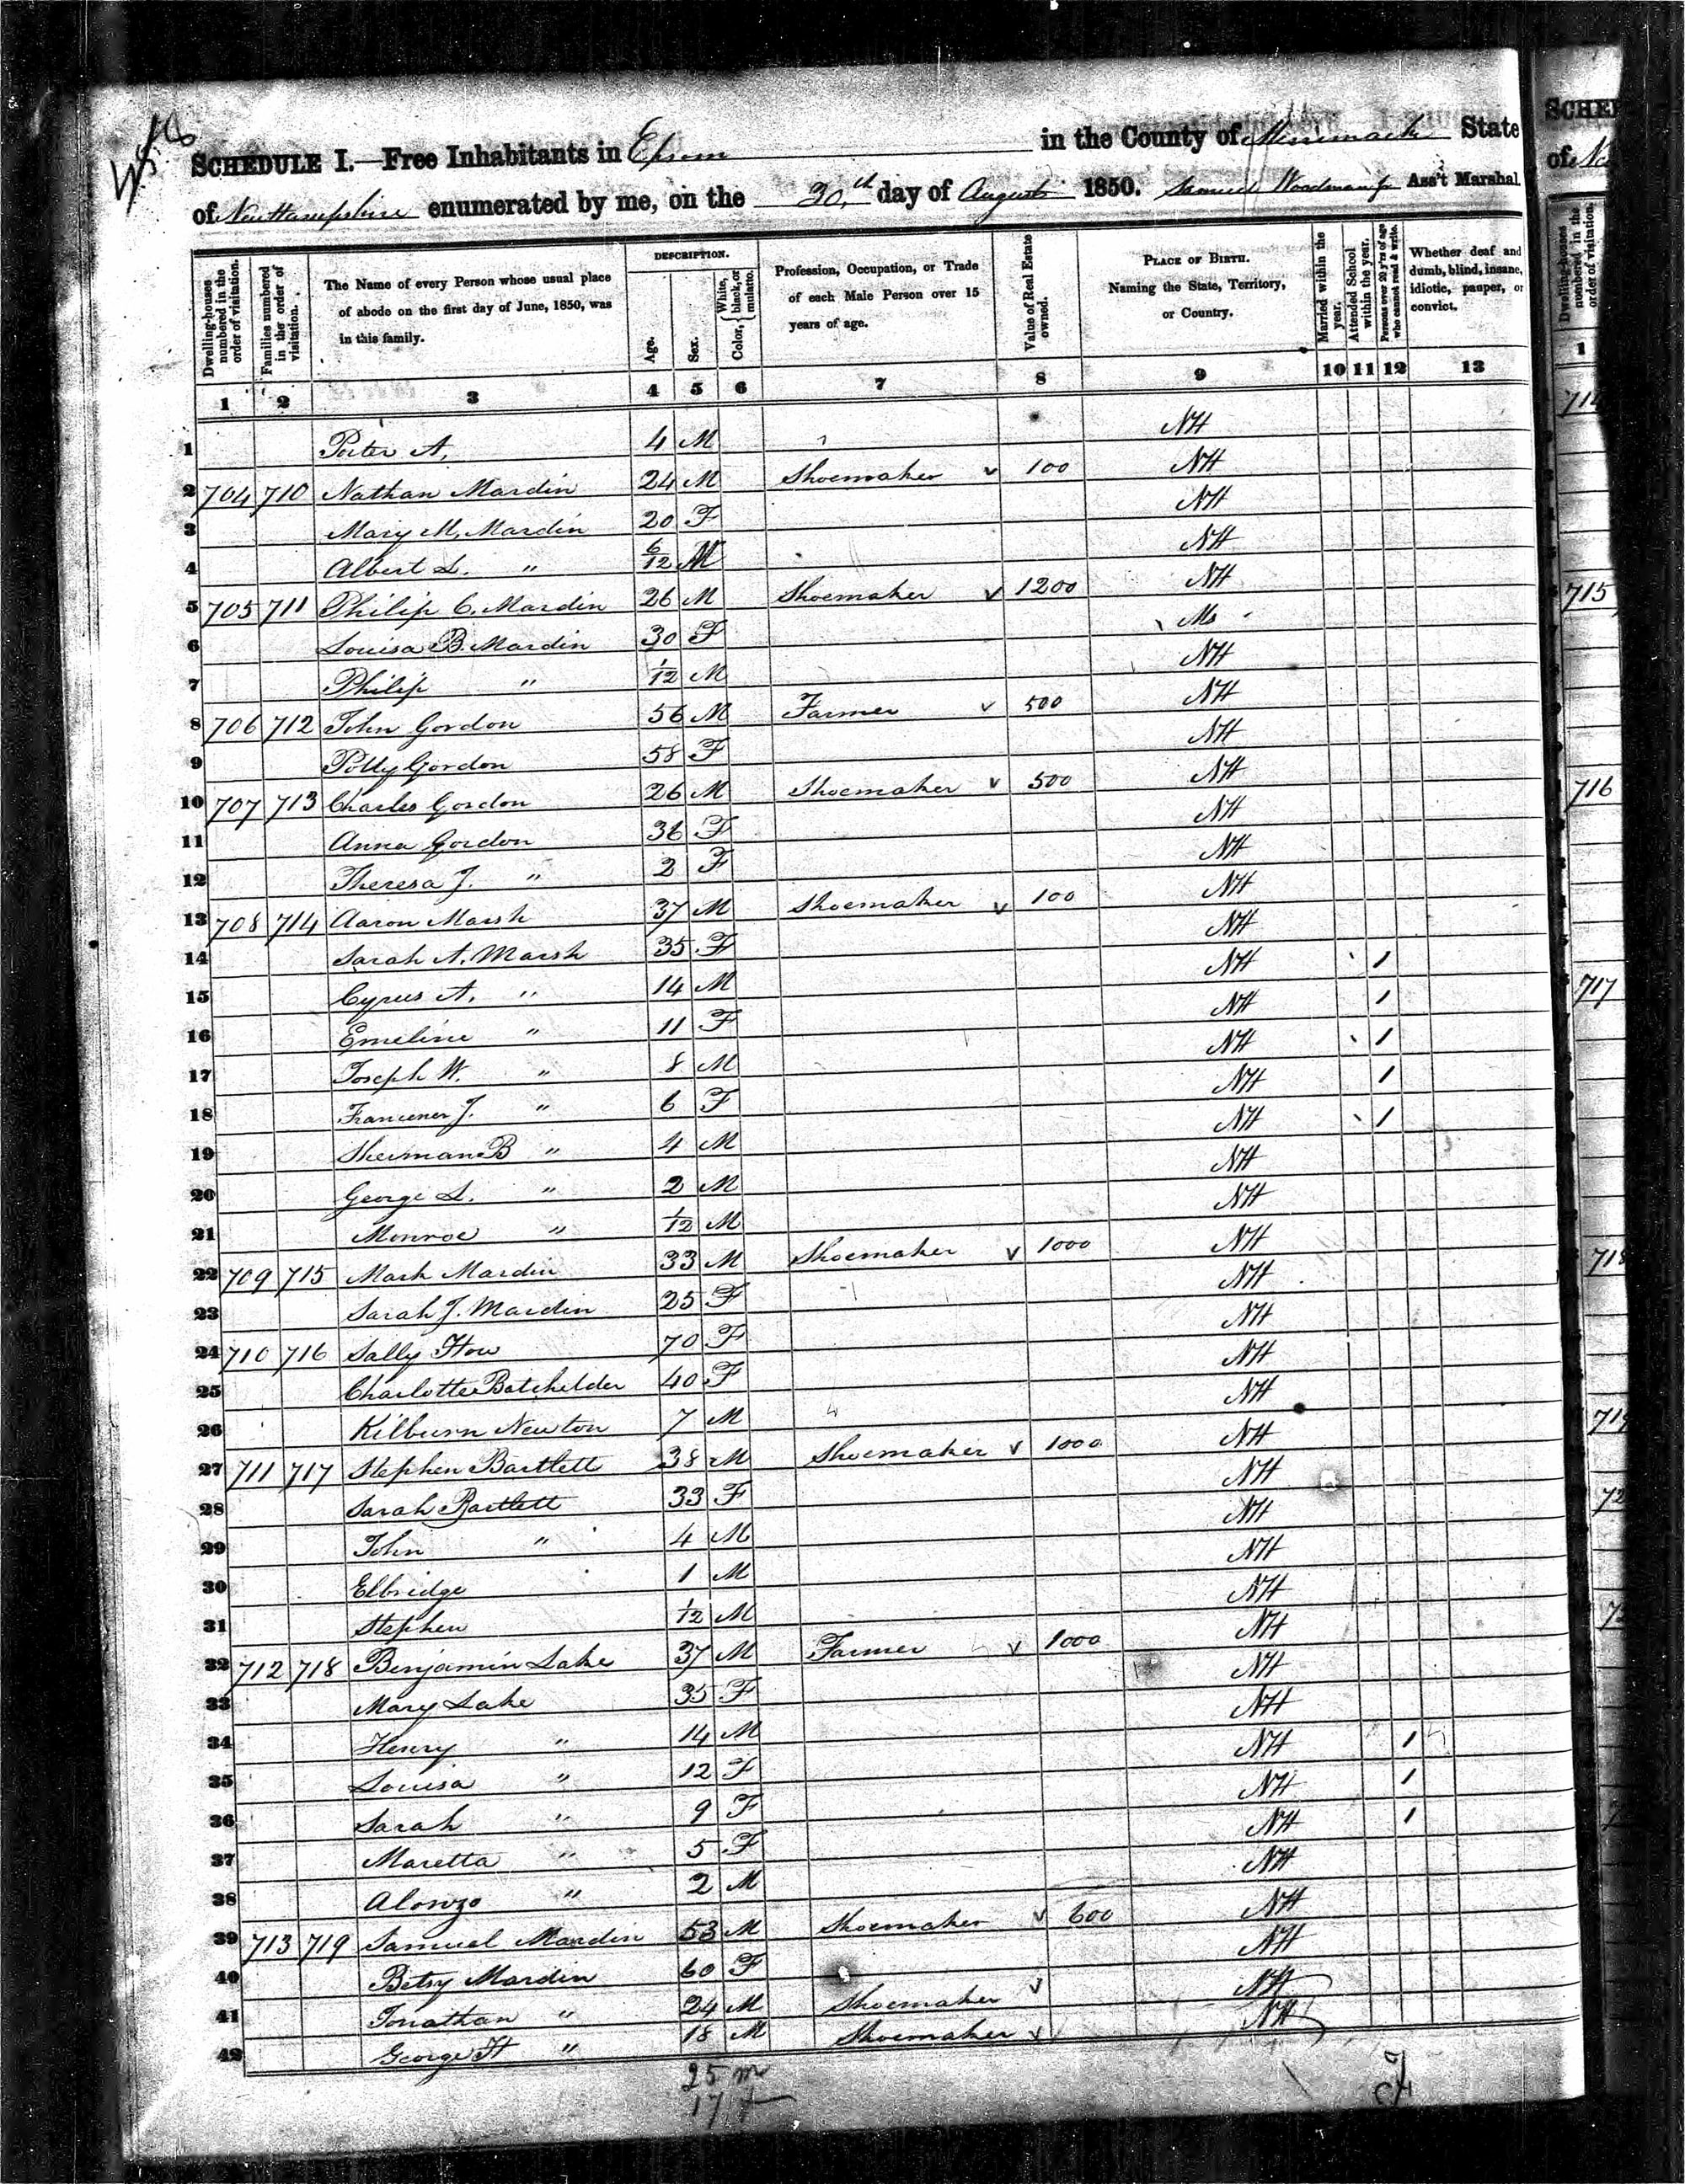 W.S. 6
SCHEDULE I.—Free Inhabitants in Epsom in the County of Merrimack State
of New Hampshire enumerated by me, on the 30th day of August 1850. Samuel Woodman Jr Ass't Marshal
Dwelling-houses numbered in the order of visitation. Families numbered in the order of visitation. The Name of every Person whose usual place of abode on the first day of June, 1850, was in this family. DESCRIPTION. Age. Sex. Color, White, black, or mulatto. Profession, Occupation, or Trade of each Male Person over 15 years of age. Value of Real Estate owned. PLACE OF BIRTH. Naming the State, Territory, or Country. Married within the year. Attended School within the year. Persons over 20 y'rs of age who cannot read & write. Whether deaf and dumb, blind, insane, idiotic, pauper, or convict.
1 2 3 4 5 6 7 8 9 10 11 12 13
1 Porter A. 4 M NH
2 704 710 Nathan Mardin 24 M Shoemaker 100 NH
3 Mary M. Mardin 20 F NH
4 Albert L. " 6/12 M NH
5 705 711 Philip C. Mardin 26 M Shoemaker 1200 NH
6 Louisa B. Mardin 30 F Ms
7 Philip " 1/12 M NH
8 706 712 John Gordon 56 M Farmer 500 NH
9 Polly Gordon 58 F NH
10 707 713 Charles Gordon 26 M Shoemaker 500 NH
11 Anna Gordon 36 F NH
12 Theresa J. " 2 F NH
13 708 714 Aaron Marsh 37 M Shoemaker 100 NH
14 Sarah A. Marsh 35 F NH
15 Cyrus A. " 14 M NH 1
16 Emeline " 11 F NH 1
17 Joseph W. " 8 M NH 1
18 Francener J. " 6 F NH 1
19 Sherman B " 4 M NH 1
20 George L. " 2 M NH
21 Monroe " 1/12 M NH
22 709 715 Mark Mardin 33 M Shoemaker 1000 NH
23 Sarah J. Mardin 25 F NH
24 710 716 Sally How 70 F NH
25 Charlotte Batchelder 40 F NH
26 Kilburn Newton 7 M NH
27 711 717 Stephen Bartlett 38 M Shoemaker 1000 NH
28 Sarah Bartlett 33 F NH
29 John " 4 M NH
30 Elbridge 1 M NH
31 Stephen 1/12 M NH
32 712 718 Benjamin Lake 37 M Farmer 1000 NH
33 Mary Lake 35 F NH
34 Henry " 14 M NH 1
35 Louisa " 12 F NH 1
36 Sarah " 9 F NH 1
37 Maretta " 5 F NH
38 Alonzo " 2 M NH
39 713 719 Samuel Mardin 53 M Shoemaker 600 NH
40 Betsy Mardin 60 F NH
41 Jonathan " 24 M Shoemaker NH
42 George H " 18 M Shoemaker NH
25 m
17 f
SCHE
of
1
714
715
716
717
718
719
72